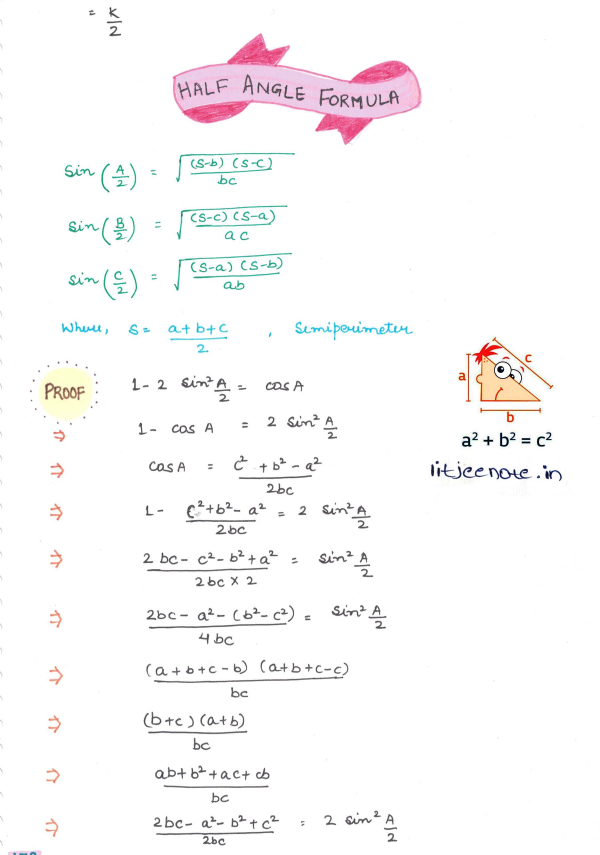 = K/2
HALF ANGLE FORMULA
Sin (A/2) = √((S-b) (S-c)/bc)
sin (B/2) = √((S-c) (S-a)/ac)
sin (C/2) = √((S-a) (S-b)/ab)
Where, S = a+b+c/2 , Semiperimeter
PROOF
1 - 2 sin² A/2 = cos A
⇒ 1 - cos A = 2 sin² A/2
⇒ cos A = c² + b² - a²/2bc
⇒ 1 - c² + b² - a²/2bc = 2 sin² A/2
⇒ 2bc - c² - b² + a²/2bc × 2 = sin² A/2
⇒ 2bc - a² - (b² - c²)/4bc = sin² A/2
⇒ (a + b + c - b) (a + b + c - c)/bc
⇒ (b + c) (a + b)/bc
⇒ ab + b² + ac + cb/bc
⇒ 2bc - a² - b² + c²/2bc = 2 sin² A/2
a
c
b
a² + b² = c²
iitjeenote.in